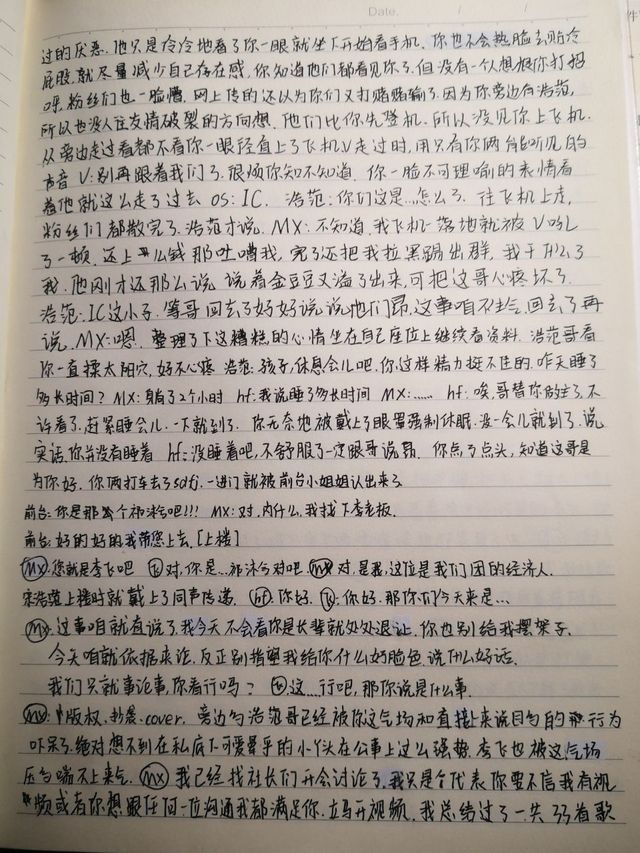 Date. / /
过的厌恶。他只是冷冷地看了你一眼就坐下开始看手机。你也不会热脸去贴冷
屁股,就尽量减少自己存在感,你知道他们都看见你了。但没有一个想搭你打招
呼。粉丝们也一脸懵。网上传的还以为你们又打赌赌输了。因为你旁边有浩范,
所以也没人往友情破裂的方向想。他们比你先登机。所以没见你上飞机。
从旁边走过看都不看你一眼径直上了飞机V走过时,用只有你俩能听见的
声音 V:别再跟着我们了。很烦你知不知道。你一脸不可理喻的表情看
着他就这么走了过去 OS:IC。 浩范:你们这是...怎么了。往飞机上走,
粉丝们都散完了。浩范才说。MX:不知道,我飞机一落地就被V吼
了一顿,还上 么钱那吐嘈我,完了还把我拉黑踢出群,我干什么了
我。他刚才还那么说。说着金豆豆又溢了出来,可把这哥心疼坏了
浩范:IC这小子。等哥回去了好好说说他们昂,这事咱不生气,回去了再
说。MX:嗯。 整理了下这糟糕的心情坐在自己座位上继续看资料。浩范哥看
你一直揉太阳穴。好不心疼 浩范:孩子,休息会儿吧。你这样精力挺不住的。昨天睡了
多长时间?MX:躺了2个小时 hf:我说睡了多长时间 MX:...... hf:唉,哥替你做主了,不
许看了,赶紧睡会儿,一下就到了。 你无奈地被戴上了眼罩强制休眠。没一会儿就到了。说
实话,你并没有睡着 hf:没睡着吧,不舒服了一定跟哥说昂。你点了点头,知道这哥是
为你好。你俩打车去了sofi.一进门就被前台小姐姐认出来了
前台:你是那 个祁沐兮吧!!! MX:对,内什么,我找下李老板。
前台:好的好的我带您上去。[上楼]
MX:您就是李飞吧 飞:对,你是...祁沐兮对吧。MX 对,是我,这位是我们团的经济人。
宋浩范上楼时就戴上了同声传递。hf:你好。飞:你好,那你们今天来是...
MX:这事咱就直说了,我今天不会看你是长辈就处处退让,你也别给我摆架子。
今天咱就依据来论,反正别指望我给你什么好脸色,说什么好话。
我们只就事论事,你看行吗? 飞:这...行吧,那你说是什么事。
MX:版权、抄袭、cover。 旁边的浩范哥已经被你这气场和直接来说目的的行为
吓呆了,绝对想不到在私底下可爱晕乎的小丫头在公事上这么强势。李飞也被这气场
压的喘不上来气。MX 我已经找社长们开会讨论了,我只是个代表你要不信我有视
频或者你想跟任何一位沟通我都满足你,立马开视频。我总结过了一共35首歌